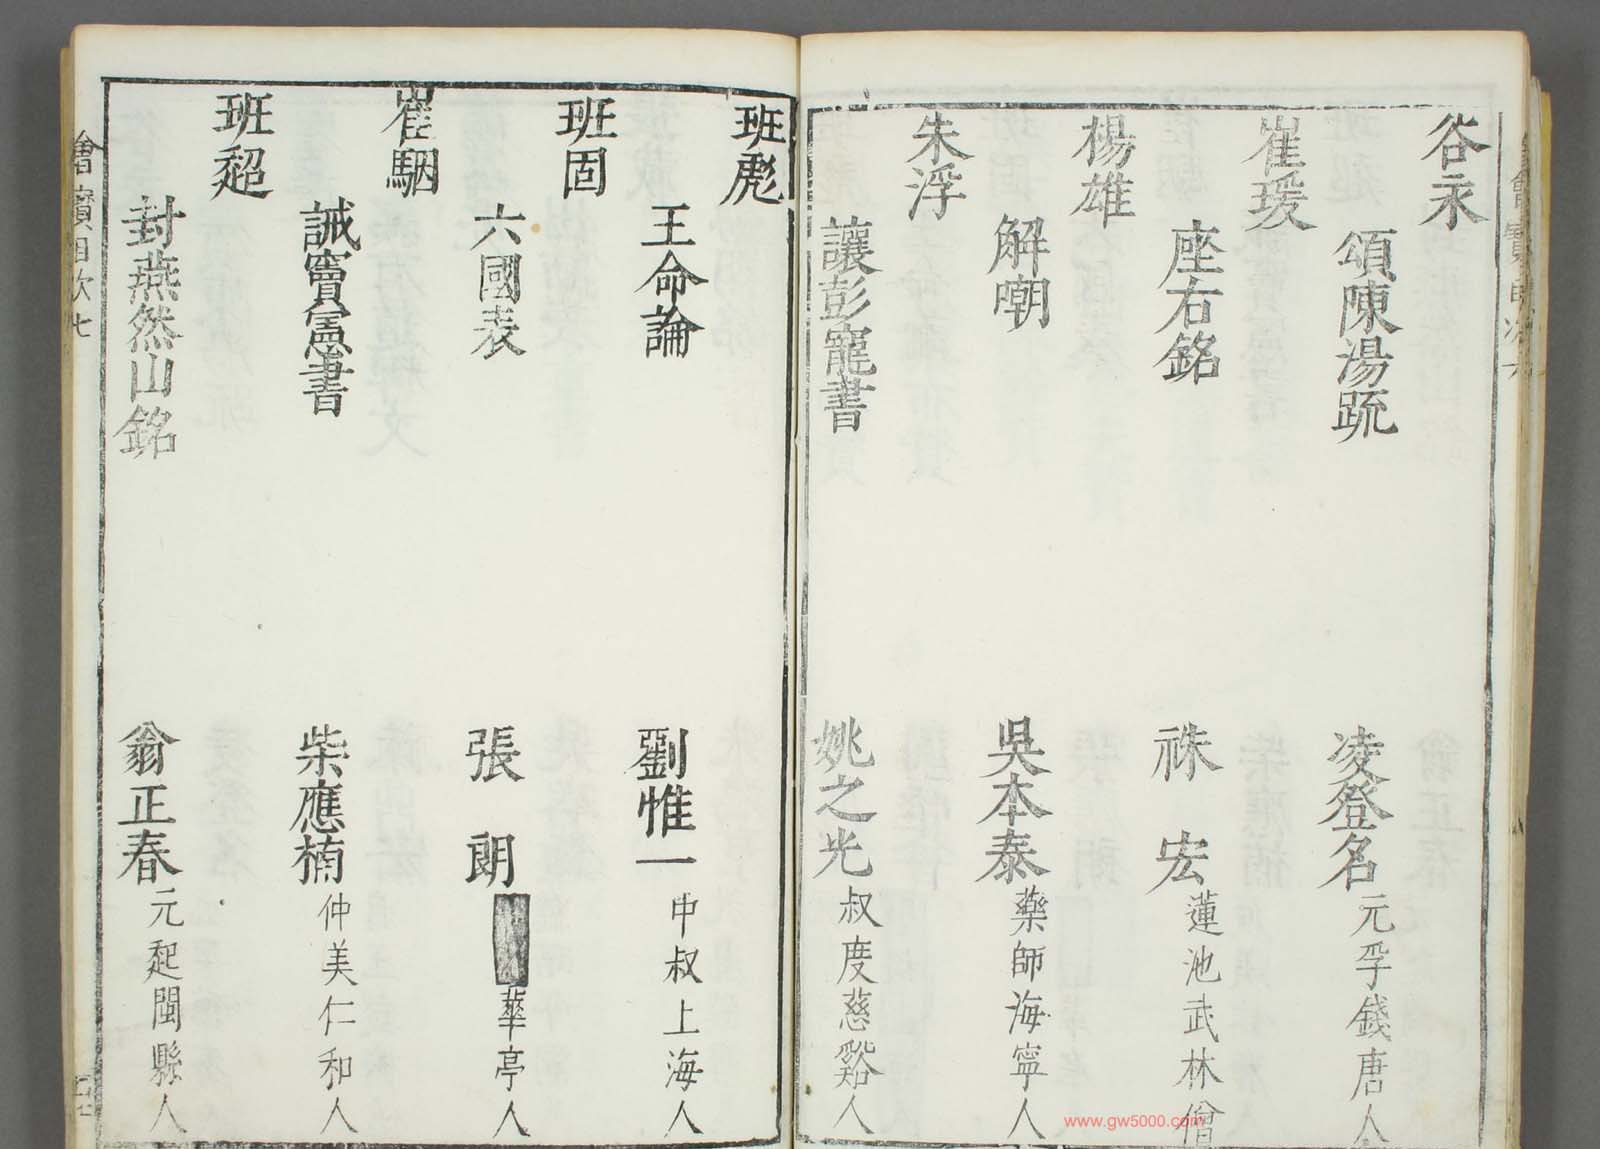 谷永
頌陳湯疏 凌登名 元孚錢唐人
崔瑗
座右銘 祩宏 蓮池武林僧
楊雄
解嘲 吳本泰 藥師海寧人
朱浮
讓彭寵書 姚之光 叔度慈谿人
班彪
王命論 劉惟一 中叔上海人
班固
六國表 張朗 華亭人
崔駰
誡竇憲書 柴應楠 仲美仁和人
班超
封燕然山銘 翁正春 元起閩縣人
www.gw5000.com